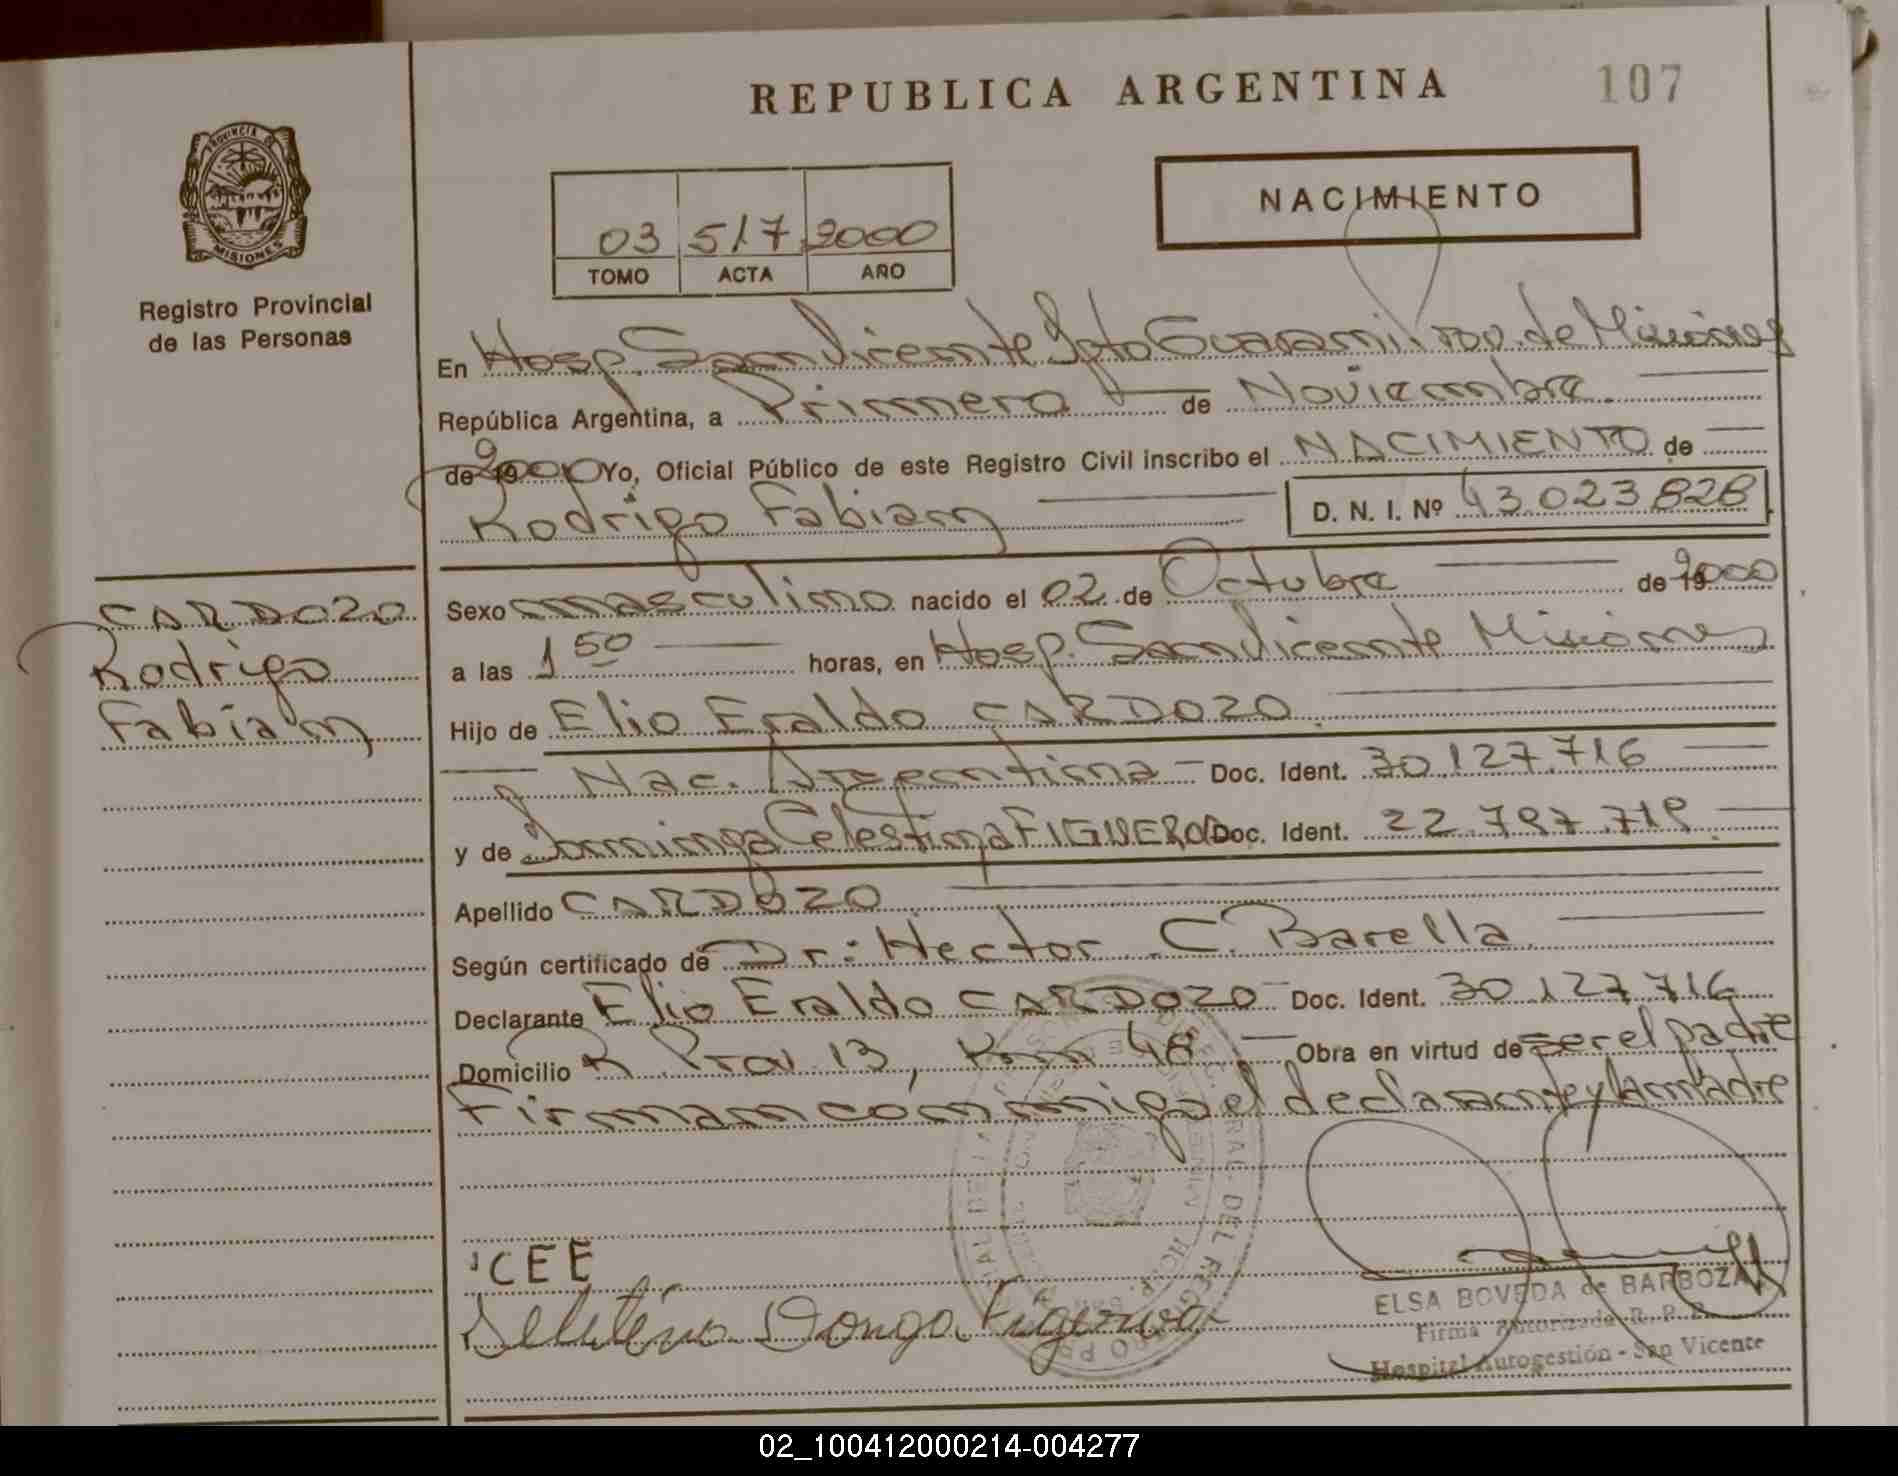 REPUBLICA ARGENTINA
107
PROVINCIA DE
MISIONES
Registro Provincial
de las Personas
03 517 2000
TOMO ACTA AÑO
NACIMIENTO
En Hosp. San Vicente Dpto Guarani Prov. de Misiones
República Argentina, a Primero de Noviembre
de 2000 Yo, Oficial Público de este Registro Civil inscribo el NACIMIENTO de
Rodrigo Fabian D. N. I. Nº 43.023.828
CARDOZO
Rodrigo
Fabian
Sexo masculino nacido el 02 de Octubre de 2000
a las 1 50 horas, en Hosp. San Vicente Misiones
Hijo de Elio Eraldo CARDOZO
Nac. Argentina Doc. Ident. 30.127.716
y de Dominga Celestina FIGUEROA Doc. Ident. 22.787.718
Apellido CARDOZO
Según certificado de Dr: Hector C. Barella
Declarante Elio Eraldo CARDOZO Doc. Ident. 30.127.716
Domicilio R. Prov. 13, Km 48 Obra en virtud de ser el padre
Firman conmigo el declarante y la madre
CEE
ELSA BOVEDA de BARBOZA
Firma Autorizada R. P. P.
Hospital Autogestión - San Vicente
02_100412000214-004277